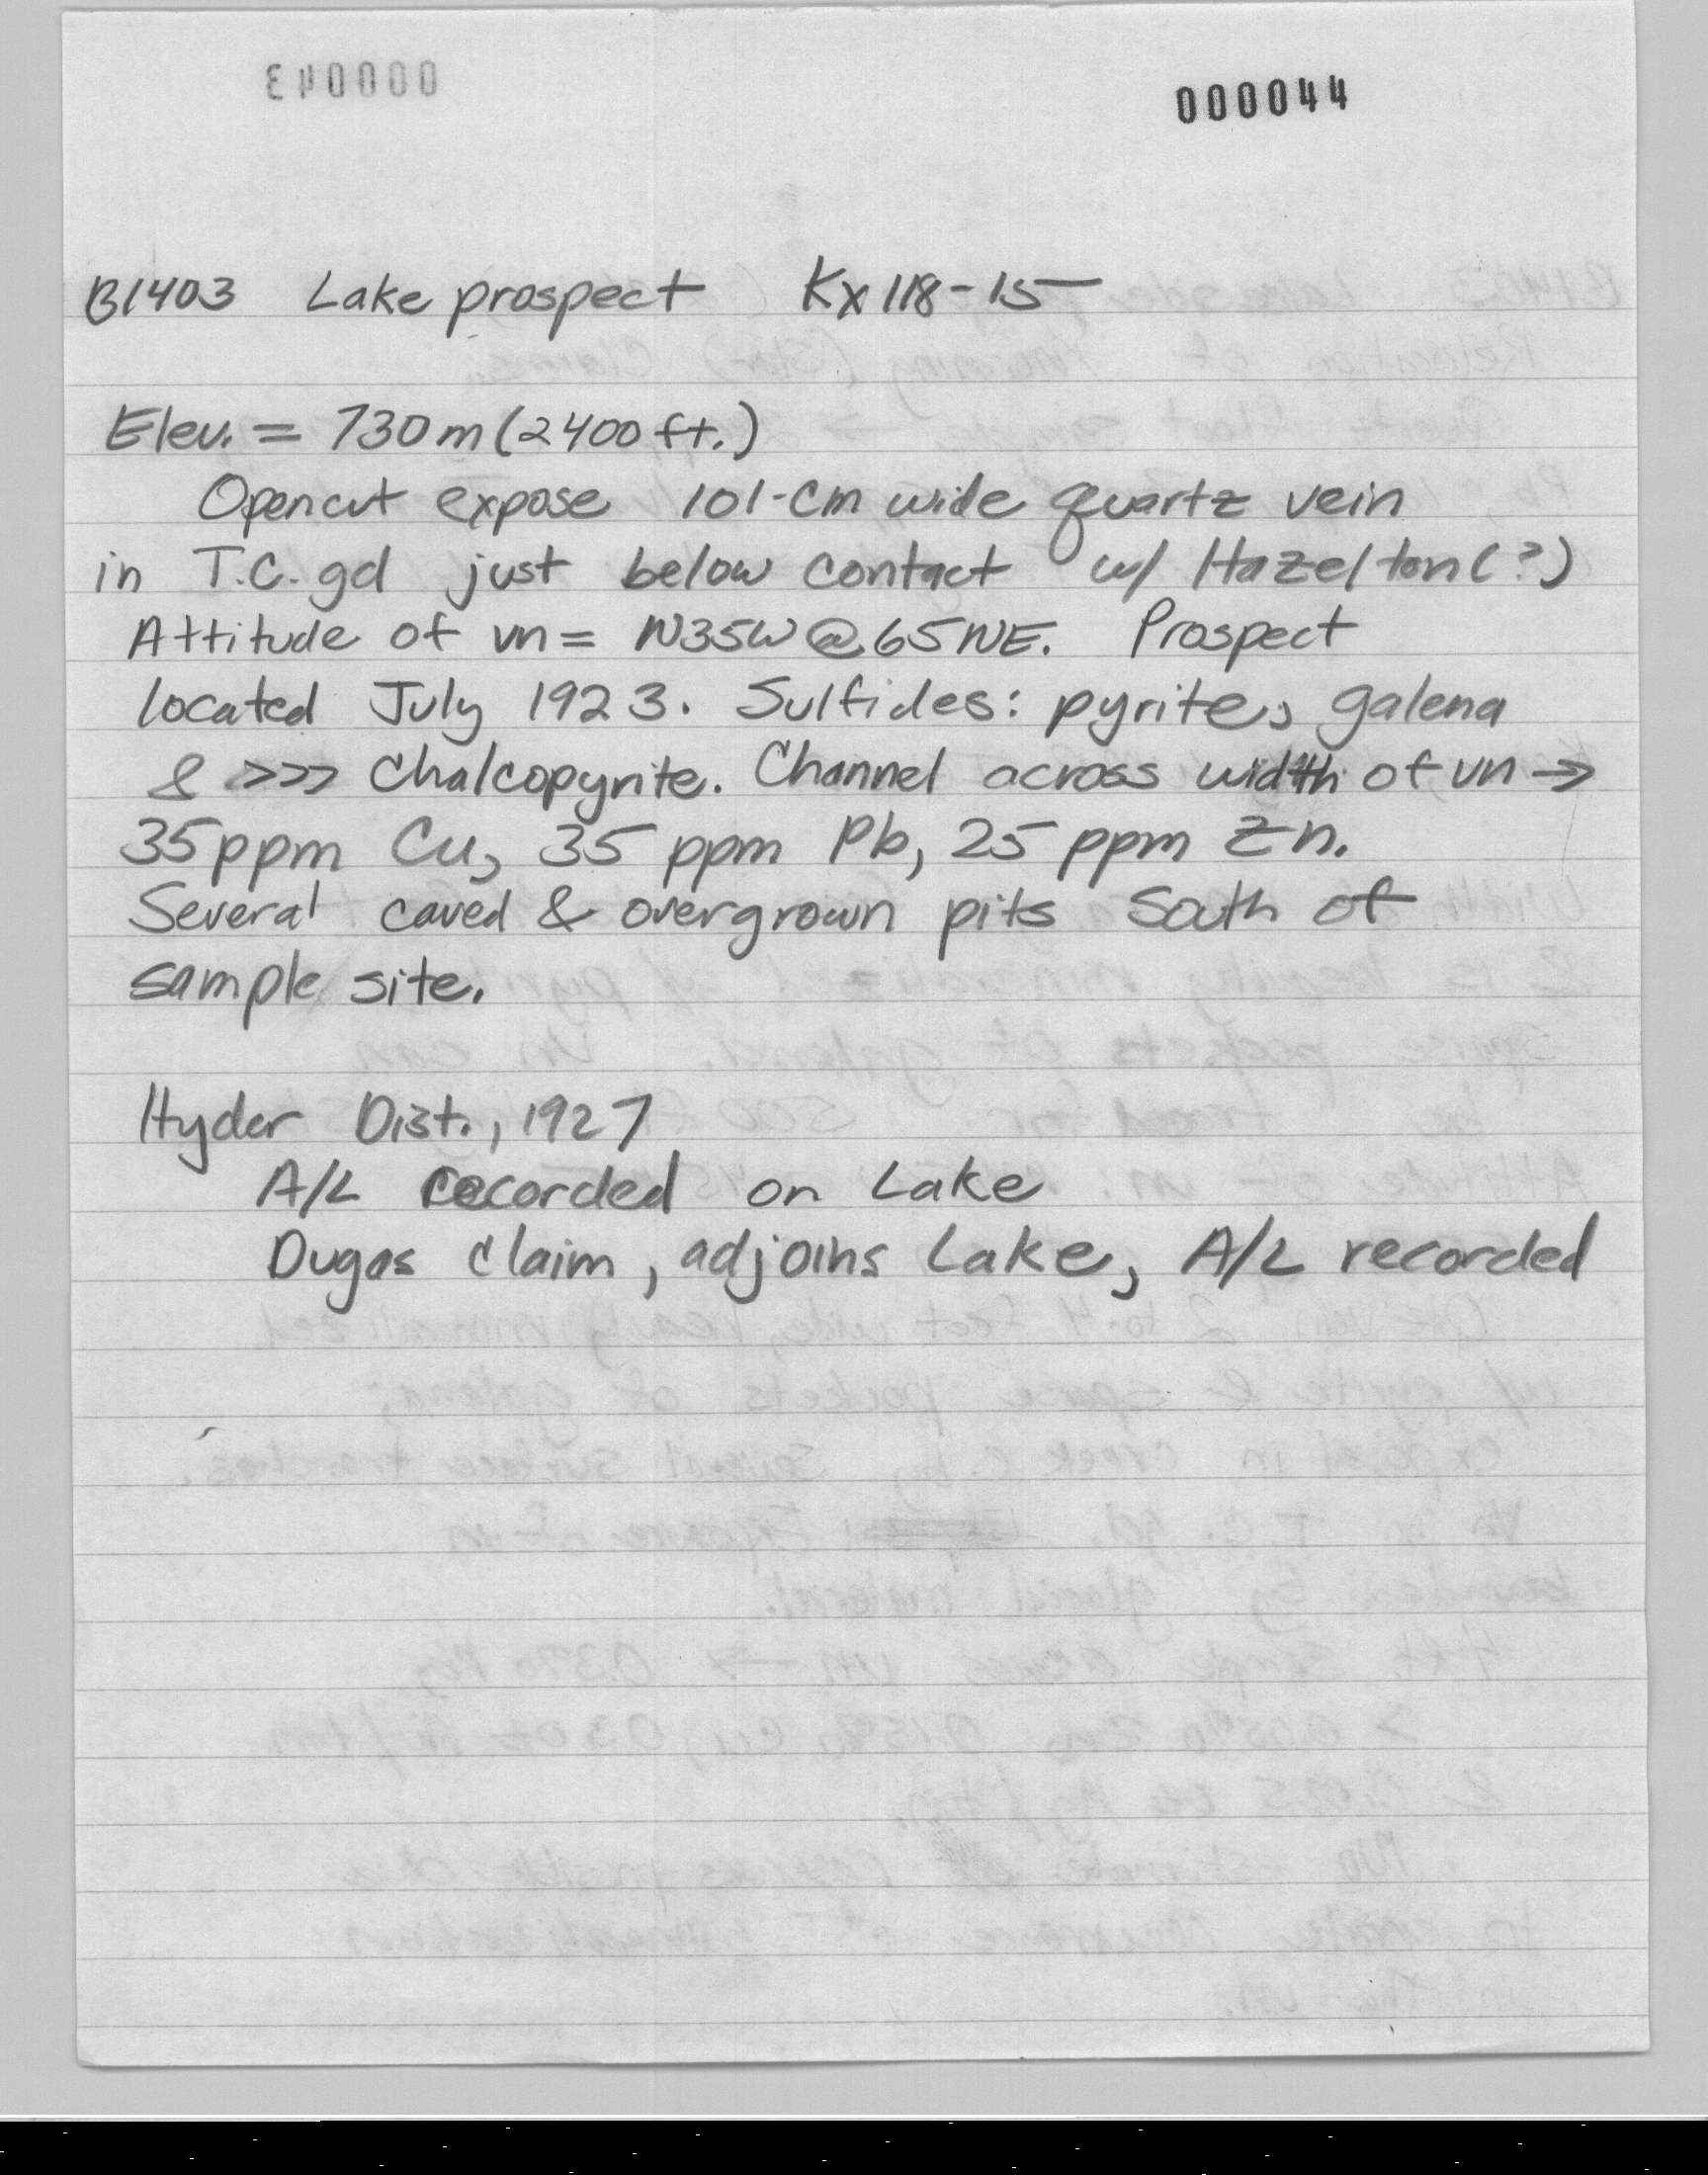 000044
B1403 Lake prospect Kx118-15
Elev. = 730m (2400 ft.)
Opencut expose 101-cm wide quartz vein
in T.C. gd just below contact w/ Hazelton(?)
Attitude of vn = N35W@65NE. Prospect
located July 1923. Sulfides: pyrite, galena
& >>> Chalcopyrite. Channel across width of vn →
35ppm Cu, 35 ppm Pb, 25 ppm Zn.
Several caved & overgrown pits South of
sample site.
Hyder Dist., 1927
A/L recorded on Lake
Dugas claim, adjoins Lake, A/L recorded